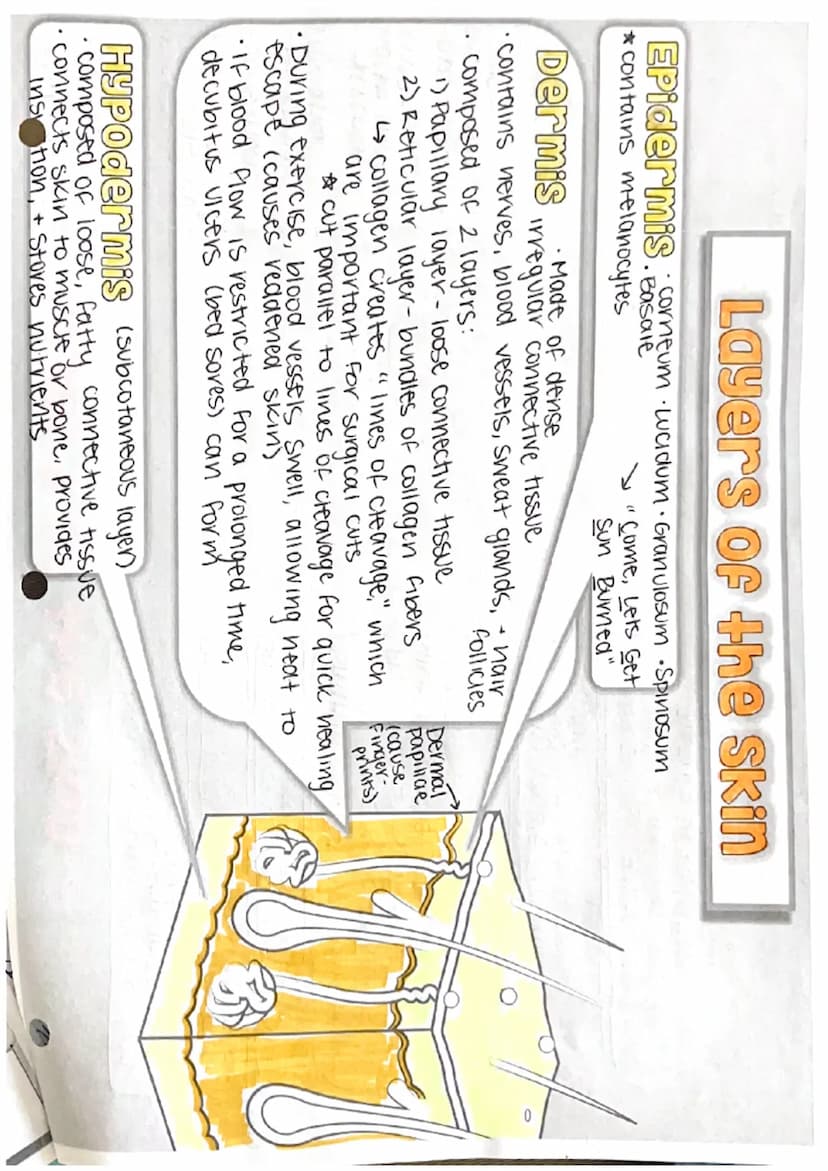 Layers of the Skin
Epidermis · corneum · Lucidum · Granulosum · Spinosum
· Basale
★ contains melanocytes
↘ "Come, Lets Get
Sun Burned"
Dermis · Made of dense
irregular connective tissue
· contains nerves, blood vessels, sweat glands, + hair
follicles
· composed of 2 layers:
1) Papillary layer - loose connective tissue
2) Reticular layer - bundles of collagen fibers
↳ collagen creates "lines of cleavage," which
are important for surgical cuts
★ cut parallel to lines of cleavage for quick healing
· During exercise, blood vessels swell, allowing heat to
escape (causes reddened skin)
· If blood flow is restricted for a prolonged time,
decubitus ulcers (bed sores) can form
Dermal
papillae
(cause
finger-
prints)
Hypodermis (subcutaneous layer)
· composed of loose, fatty connective tissue
· connects skin to muscle or bone, provides
+ stores nutrients